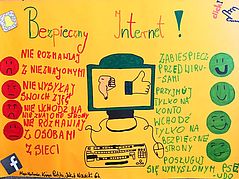 Bezpieczny Internet!
click!
NIE ROZMAWIAJ
Z NIEZNAJOMYMI
NIE WYSYŁAJ
SWOICH ZDJĘĆ
NIE WCHODŹ NA
NIEZNAJOME STRONY
NIE ROZMAWIAJ
Z OSOBAMI
Z SIECI
ZABEZPIECZ
PRZED WIRU-
SAMI
PRZYJMUJ
TYLKO NA
KONTO
WCHODŹ
TYLKO NA
BEZPIECZNE
STRONY
POSŁUGUJ
SIĘ WYMYSLONYM PSE-
UDO
f